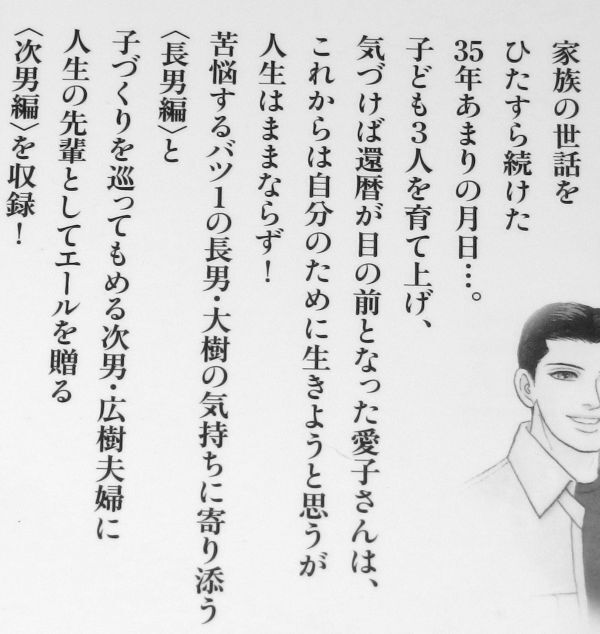 家族の世話を
ひたすら続けた
35年あまりの月日…。
子ども3人を育て上げ、
気づけば還暦が目の前となった愛子さんは、
これからは自分のために生きようと思うが
人生はままならず！
苦悩するバツ1の長男・大樹の気持ちに寄り添う
〈長男編〉と
子づくりを巡ってもめる次男・広樹夫婦に
人生の先輩としてエールを贈る
〈次男編〉を収録！